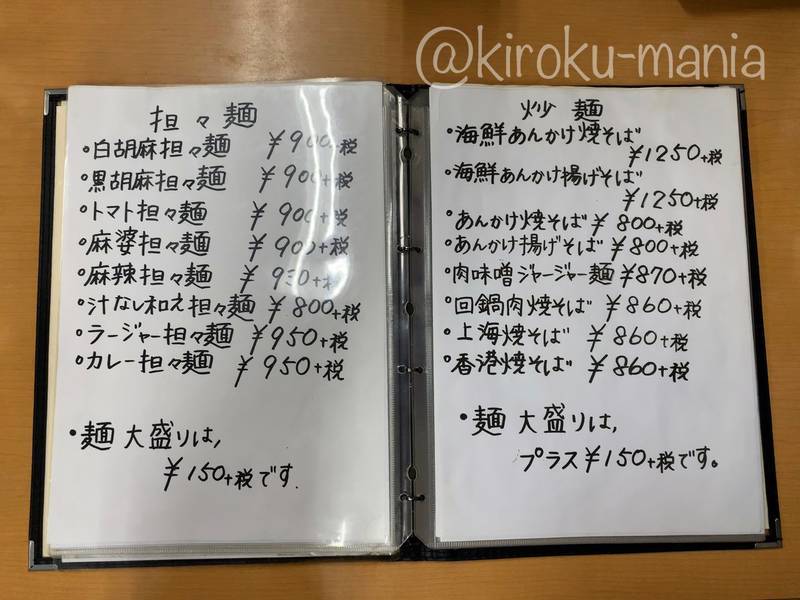 @kiroku-mania
担々麺
・白胡麻担々麺 ¥900+税
・黒胡麻担々麺 ¥900+税
・トマト担々麺 ¥900+税
・麻婆担々麺 ¥900+税
・麻辣担々麺 ¥930+税
・汁なし和え担々麺 ¥800+税
・ラージャー担々麺 ¥950+税
・カレー担々麺 ¥950+税
・麺 大盛りは,
¥150+税です.
炒麺
・海鮮あんかけ焼そば
¥1250+税
・海鮮あんかけ揚げそば
¥1250+税
・あんかけ焼そば ¥800+税
・あんかけ揚げそば ¥800+税
・肉味噌ジャージャー麺 ¥870+税
・回鍋肉焼そば ¥860+税
・上海焼そば ¥860+税
・香港焼そば ¥860+税
・麺 大盛りは,
プラス¥150+税です。